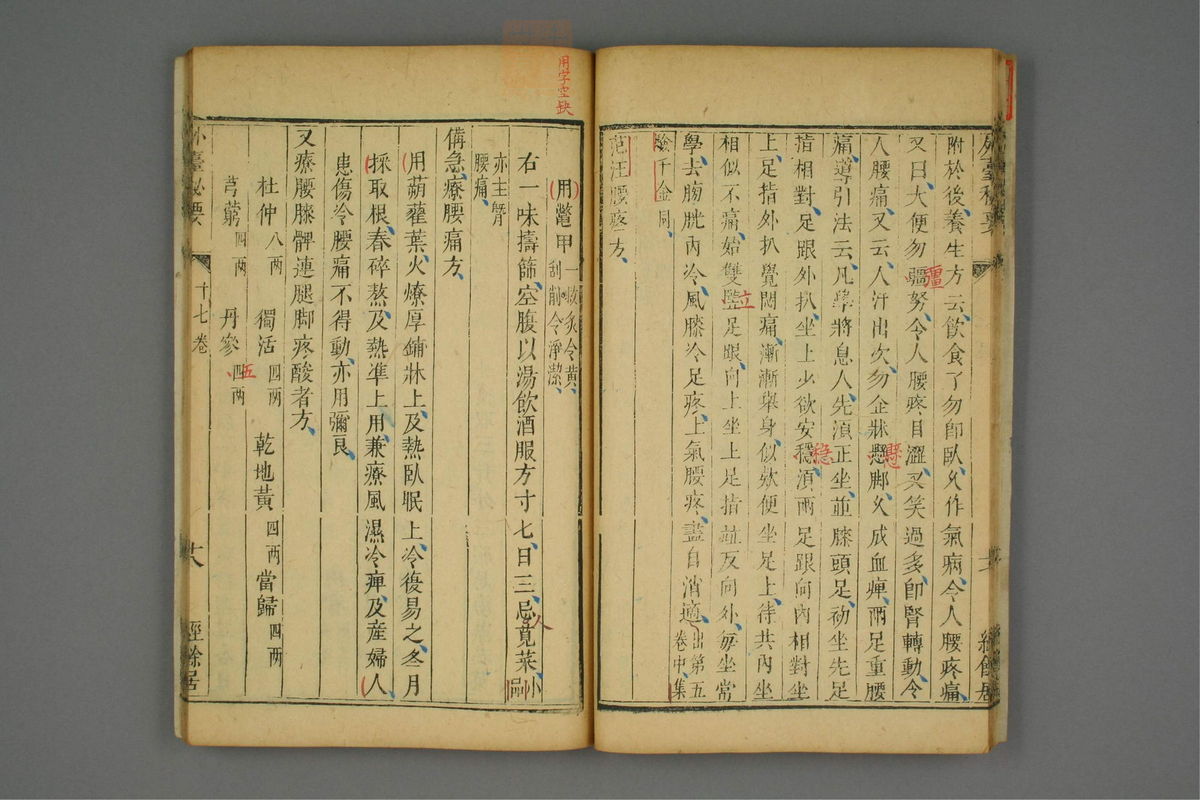 附於後養生方云飲食了勿即臥久作氣病令人腰疼痛
又曰大便勿強努令人腰疼目澀又笑過多即腎轉動令
人腰痛又云人汗出次勿企牀懸脚久成血痺兩足重腰
痛導引法云凡學將息人先須正坐並膝頭足初坐先足
指相對足跟外扒坐上少欲安穩須兩足跟向內相對坐
上足指外扒覺悶痛漸漸舉身似欵便坐足上待共內坐
相似不痛始雙豎足跟向上坐上足指並反向外每坐常
學去膀胱內冷風膝冷足疼上氣腰疼盡自消適出第五卷中集
驗千金同
范汪腰疼方
用鼈甲一枚炙令黃刮削令淨潔
右一味擣篩空腹以湯飲酒服方寸匕日三忌莧菜小品
亦主臂腰痛
備急療腰痛方
用蒴藋葉火燎厚鋪牀上及熱臥眠上冷復易之冬月
採取根舂碎熬及熱準上用兼療風濕冷痺及産婦人
患傷冷腰痛不得動亦用彌良
又療腰膝髀連腿脚疼酸者方
杜仲八兩 獨活四兩 乾地黃四兩 當歸四兩
芎藭四兩 丹參四兩
外臺秘要 十七卷 十八 經餘居
用字空缺
疆
懸
穏
立
五
人